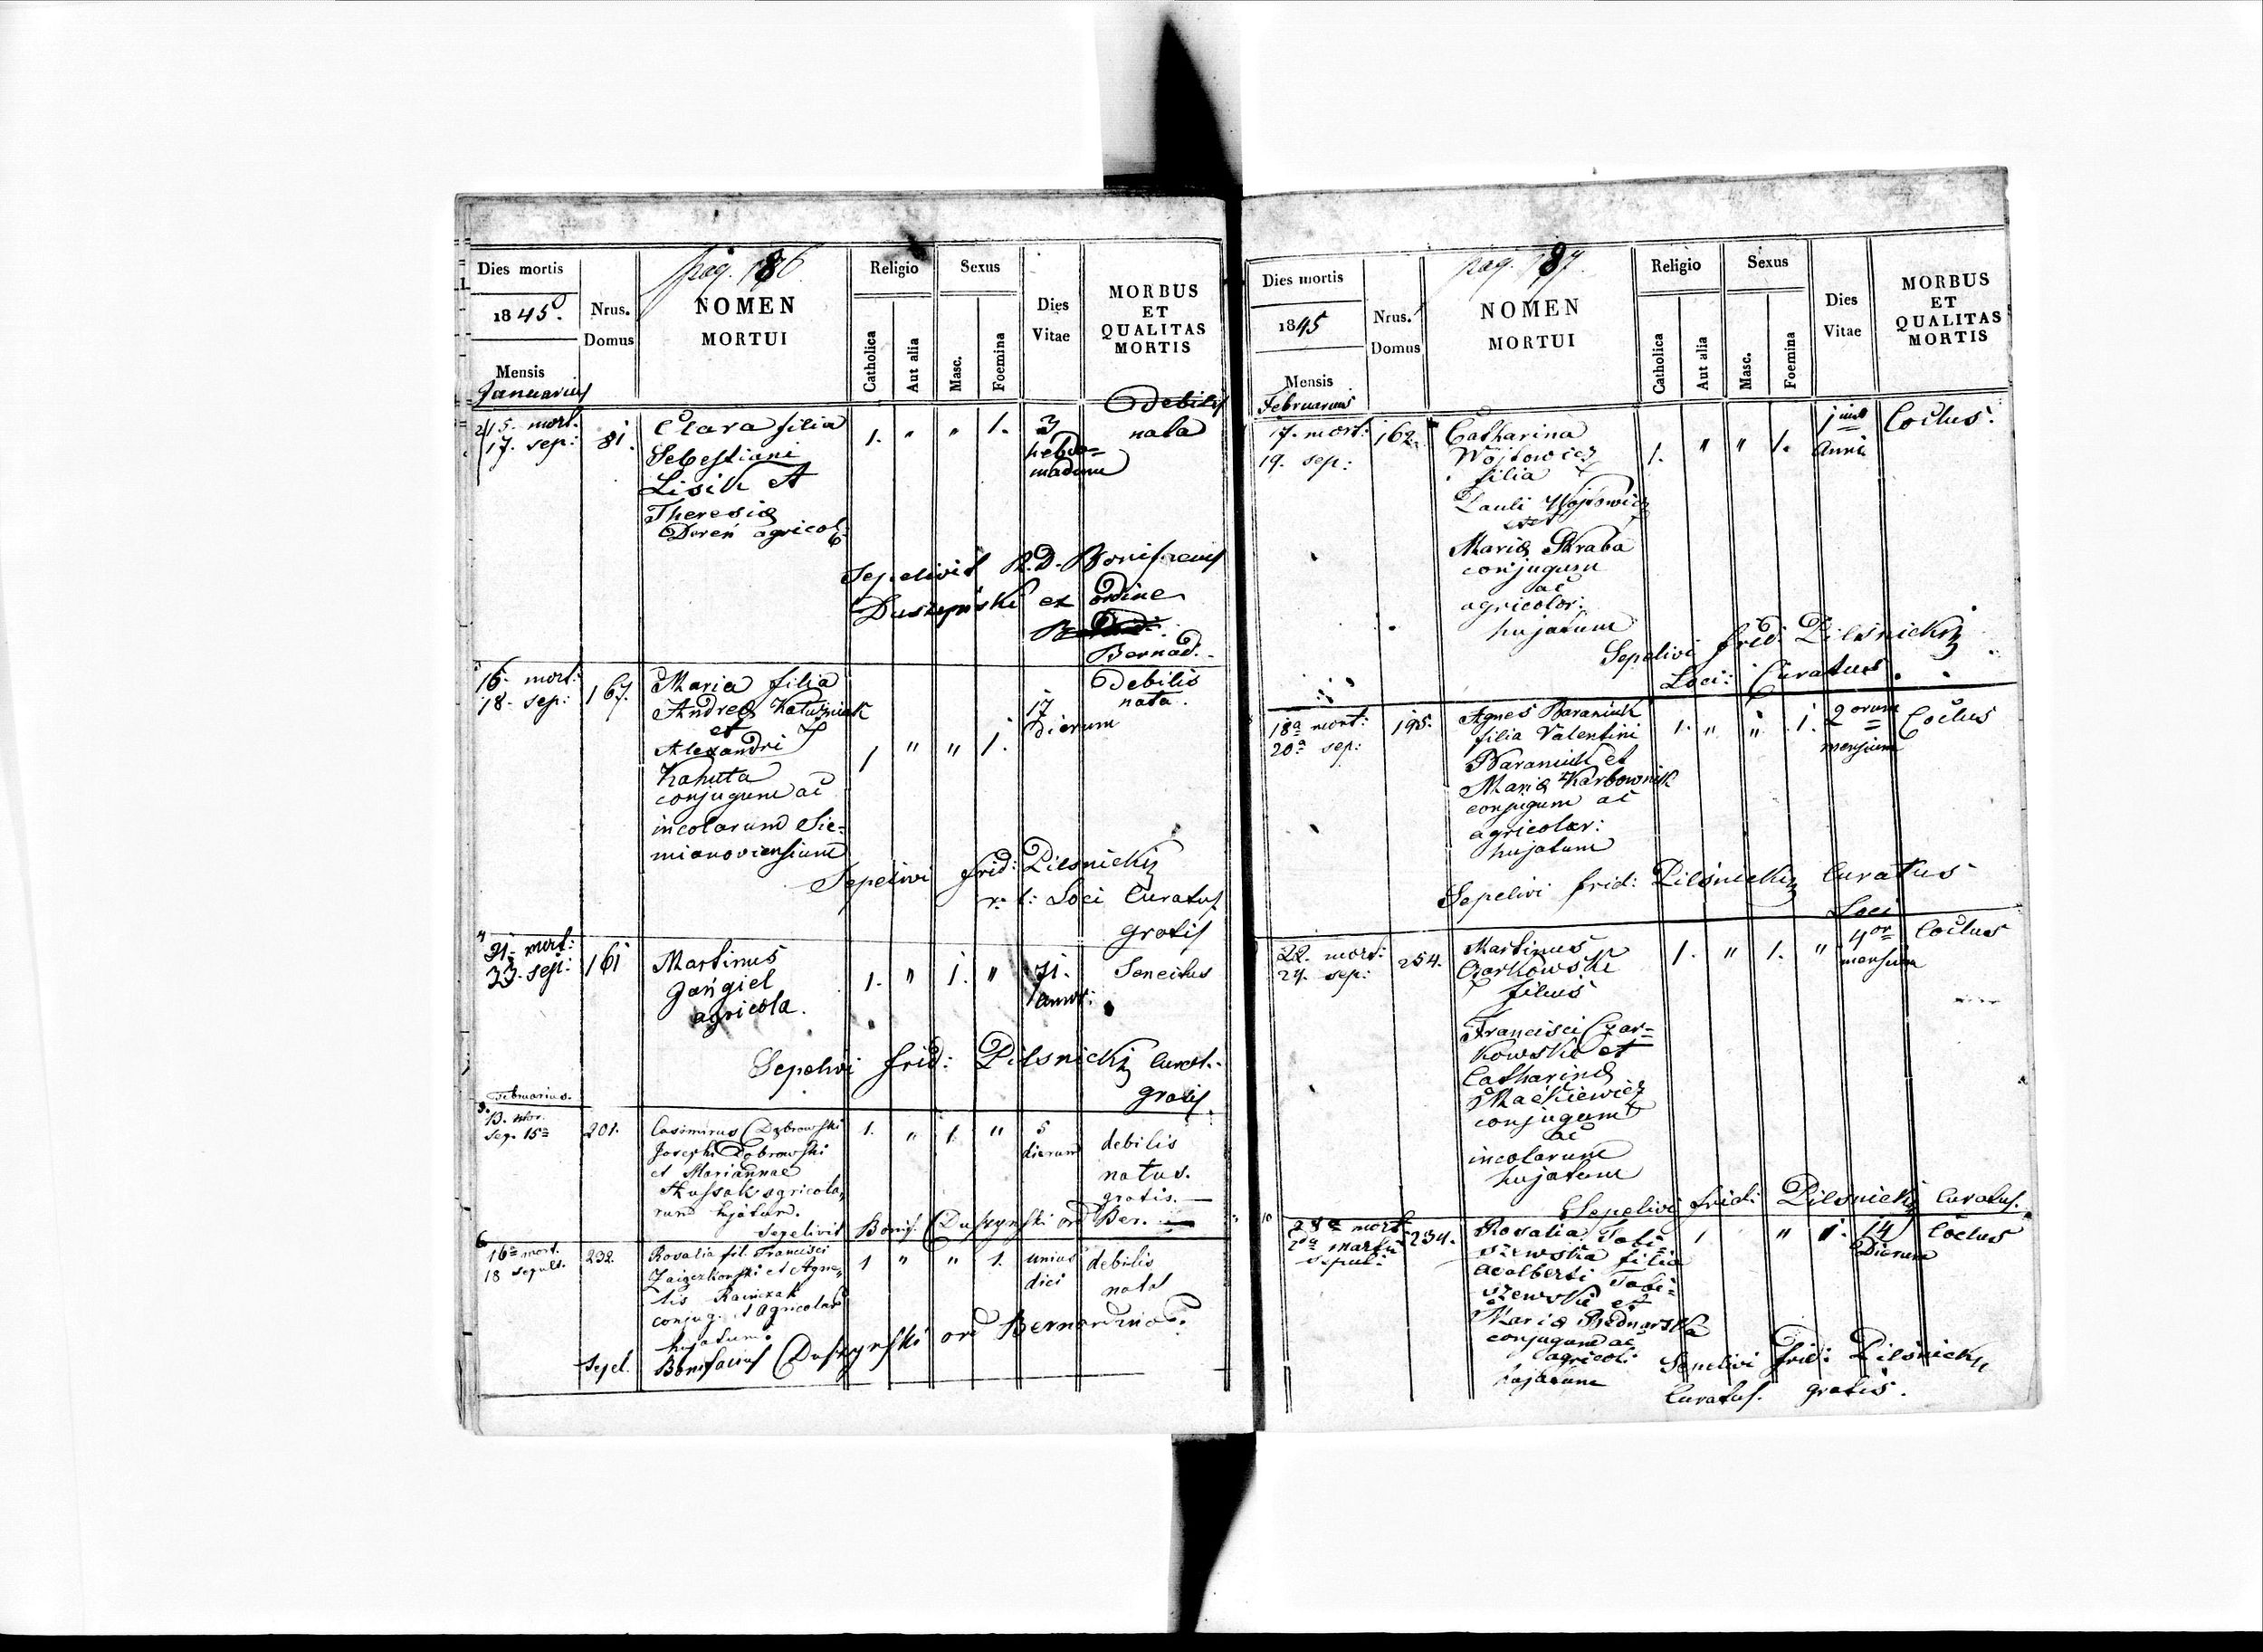 pag. 186
Dies mortis
1845.
Mensis
Januarius
Nrus.
Domus
NOMEN
MORTUI
Religio
Catholica
Aut alia
Sexus
Masc.
Foemina
Dies
Vitae
MORBUS
ET
QUALITAS
MORTIS
15. mort.
17. sep:
81.
Clara filia
Sebestiani
Lisik et
Theresiae
Doreń agricol:
1. " " 1.
3
hebdo=
madum
Debilis
nata
Sepelivit R.D. Bonifacius
Duszynski ex ordine
Bernad.
16. mort:
18. sep:
167.
Maria filia
Andreae Katuzniak
et
Alexandri
Kahuta
conjugum ac
incolarum Sie=
mianoviensium
1 " " 1.
17
Dierum
Debilis
nata.
Sepelivi frid: Pilsnicky
r. l: Loci Curatus
gratis
4
21. mort:
23. sep:
161
Martinus
Jangiel
agricola.
1. " 1. "
71.
annor:
Senectus
Sepelivi frid: Pilsnicky Curat.
gratis.
Februarius.
5.
13. mor.
Sep. 15a
201.
Casimirus Dąbrowski
Josephi Dąbrowski
et Mariannae
Kussak agricola,
rum hujatum.
1. " 1. "
5
dierum
debilis
natus.
gratis. —
Sepelivit Bonif. Duszynski ord Ber. —
6
16a mort.
18 sepult.
232.
Rosalia fil. Francisci
et Agne,
tis
conjug. et Agricolar
hujatum.
1 " " 1.
unius
diei
debilis
nata
Sepel. Bonifacius Duszynski ord Bernardino.
pag. 187.
Dies mortis
1845
Mensis
Februarius
Nrus.
Domus
NOMEN
MORTUI
Religio
Catholica
Aut alia
Sexus
Masc.
Foemina
Dies
Vitae
MORBUS
ET
QUALITAS
MORTIS
17. mort:
19. sep:
162.
Catharina
Wojtowicz
filia
Pauli Wojtowicz
et
Mariae Skraba
conjugum
ac
agricolor:
hujatum
1. " " 1.
1 ius
Anni
Coctus.
Sepelivi frid: Pilsnicky
Loci: Curatus.
18a mort:
20a sep:
195.
Agnes Baraniuk
filia Valentini
Baraniuk et
Mariae Karbownik
conjugum ac
agricolar:
hujatum
1. " " 1.
2 orum
mensium
Coctus
Sepelivi frid: Pilsnicky Curatus
Loci
22. mort:
24. sep:
254.
Martinus
Czarkowski
filius
Francisci Czar=
kowski et
Catharinae
Mackiewicz
conjugum
ac
incolarum
hujatum
1. " 1. "
4 or
mensium
Coctus
Sepelivi frid: Pilsnicky Curatus.
10
28a mort
2da Martii
sepul:
234.
Rosalia Tobi=
szewska filia
Adalberti Tobi=
szewski et
Mariae Bednarska
conjugum ac
agricol:
hujatum
1 " 1.
14
Dierum
Coctus
Sepelivi frid: Pilsnicky
Curatus. gratis.